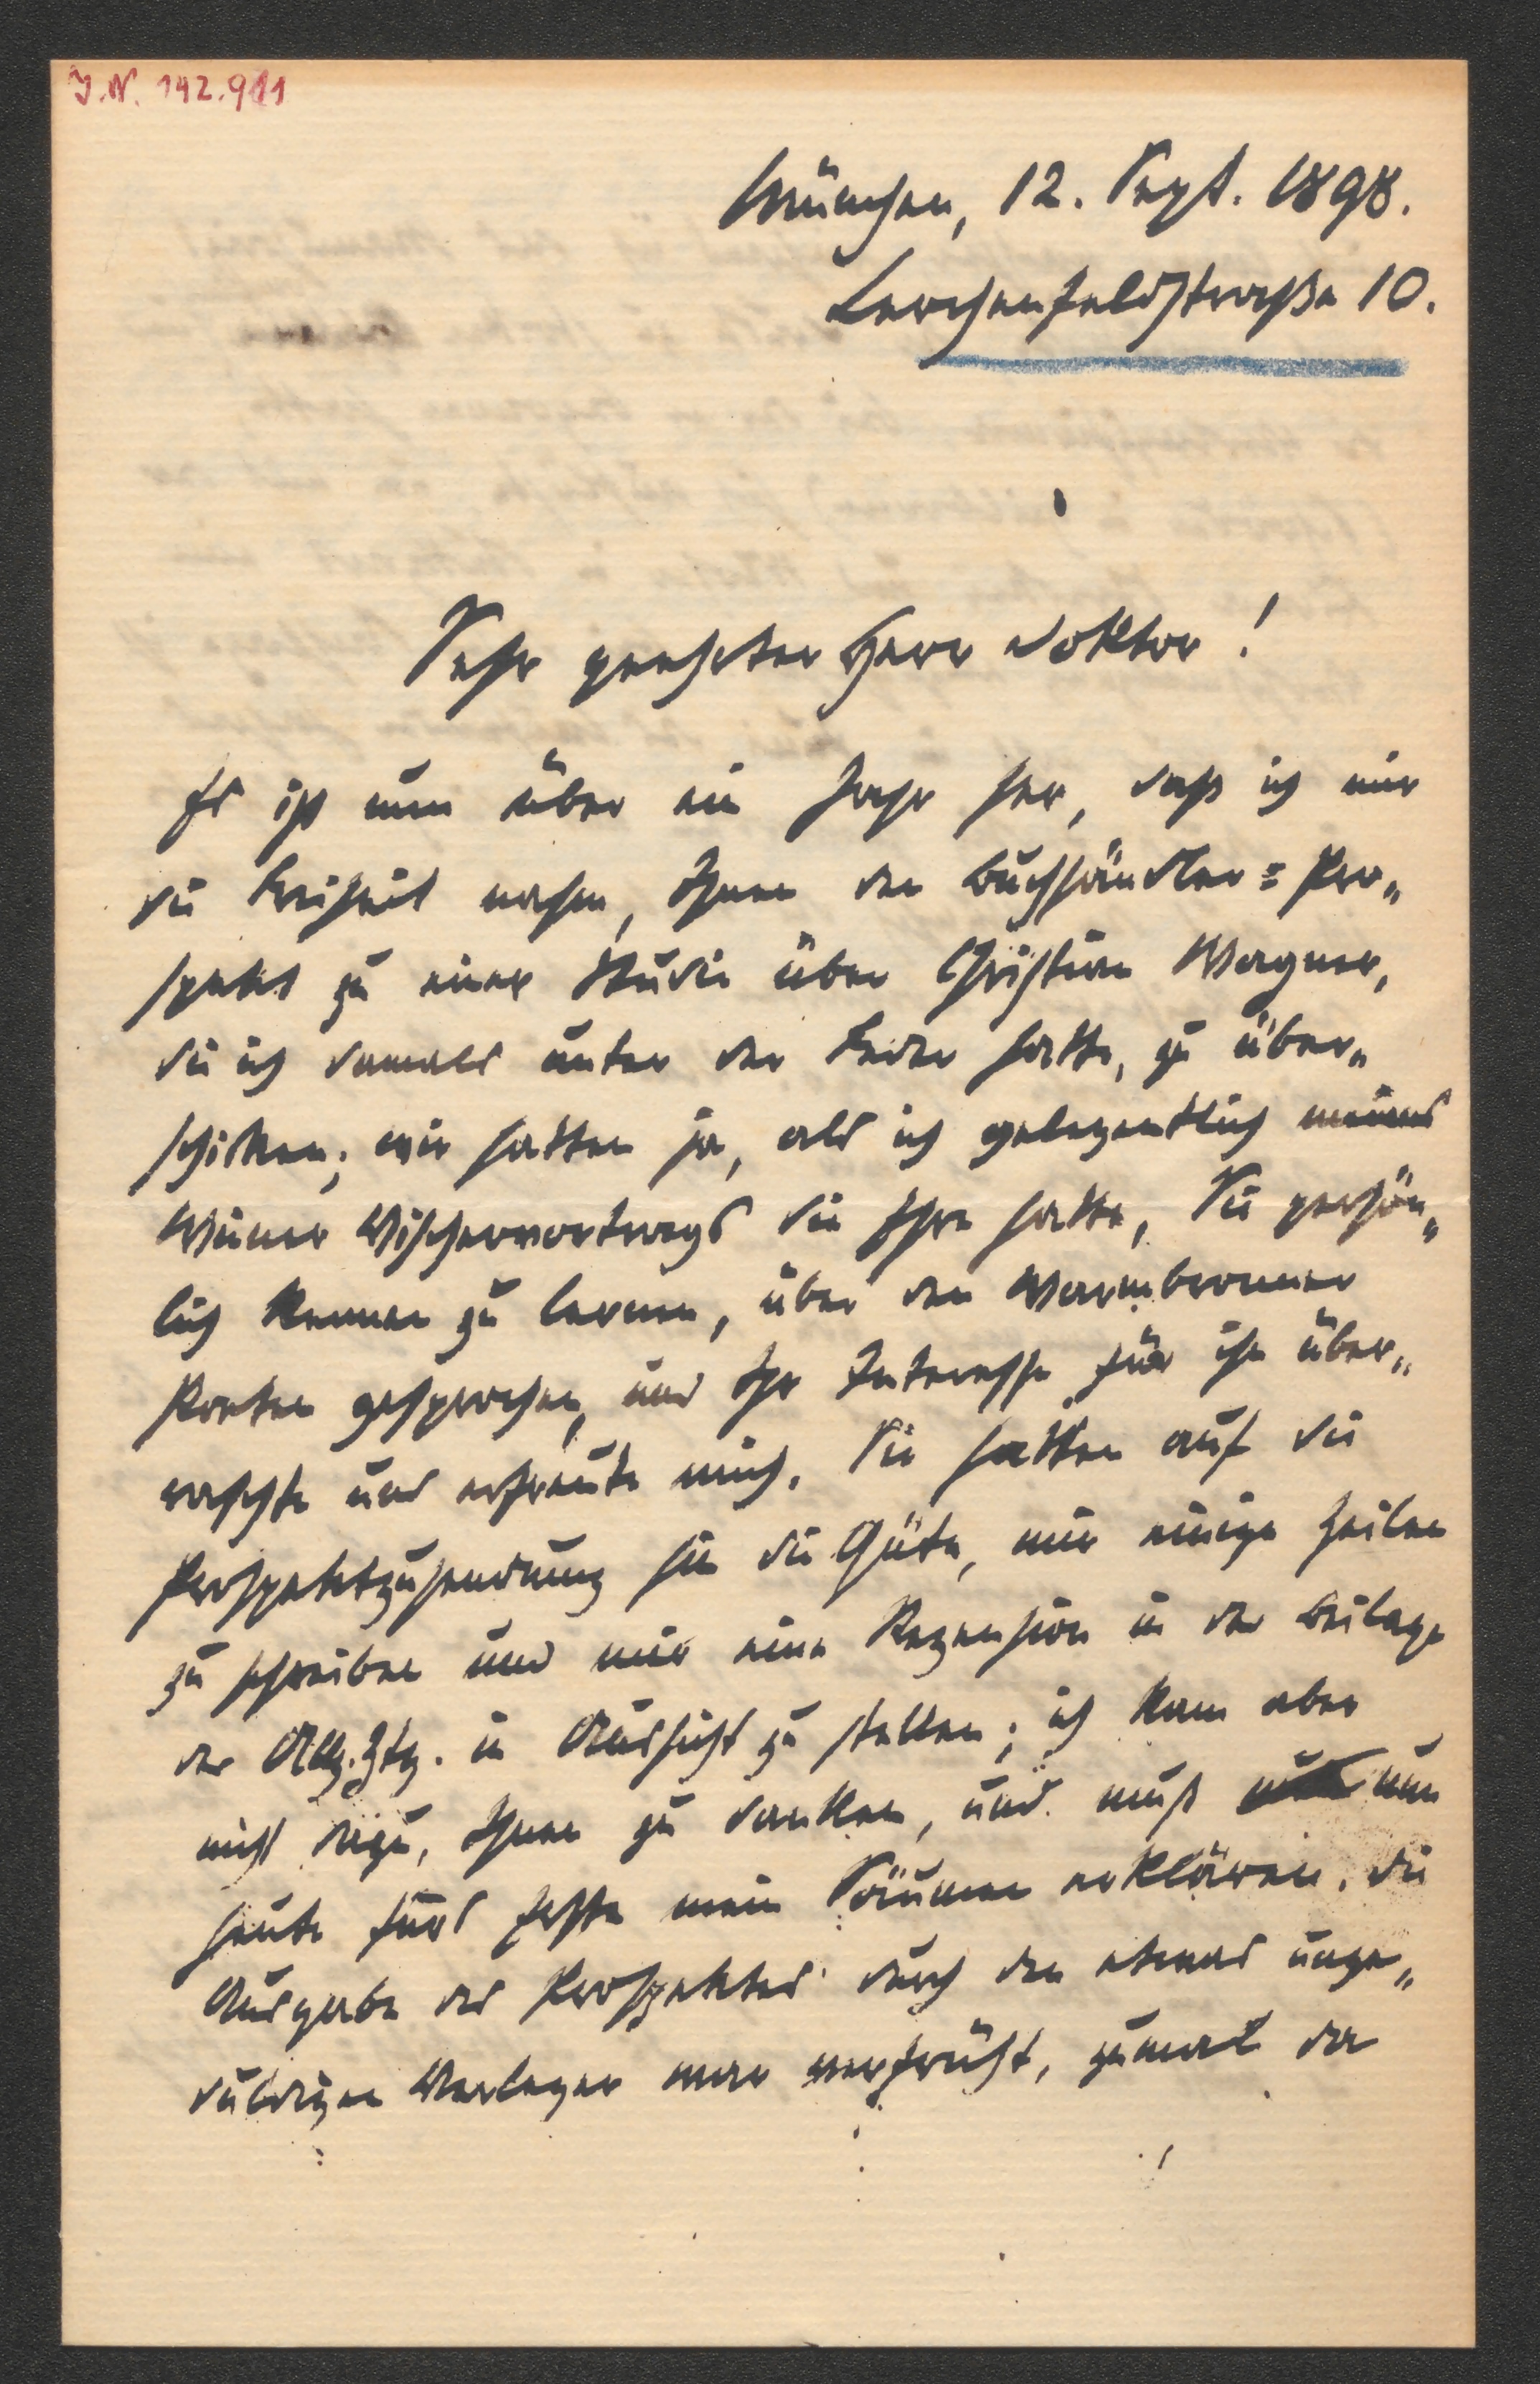 J.N. 142.911
München, 12. Sept. 1898.
Lerchenfeldstraße 10.
Sehr geehrter Herr Doktor!
Es ist nun über ein Jahr her, daß ich mir
die Freiheit nahm, Ihnen den Buchhändler=Pro„
spekt zu einer Studie über Christian Wagner,
die ich damals unter der Feder hatte, zu über„
schicken; wir hatten ja, als ich gelegentlich meines
Wiener Vischervortrags die Ehre hatte, Sie persön„
lich kennen zu lernen, über den Warmbronner
Poeten gesprochen, und Ihr Interesse für ihn über„
raschte und erfreute mich. Sie hatten auf die
Prospektzusendung hin die Güte, mir einige Zeilen
zu schreiben und mir eine Rezension in der Beilage
der Allg. Ztg. in Aussicht zu stellen; ich kam aber
nicht dazu, Ihnen zu danken, und muß nun
heute fürs erste mein Säumen erklären. Die
Ausgabe des Prospektes durch den etwas unge„
duldigen Verleger war verfrüht, zumal da